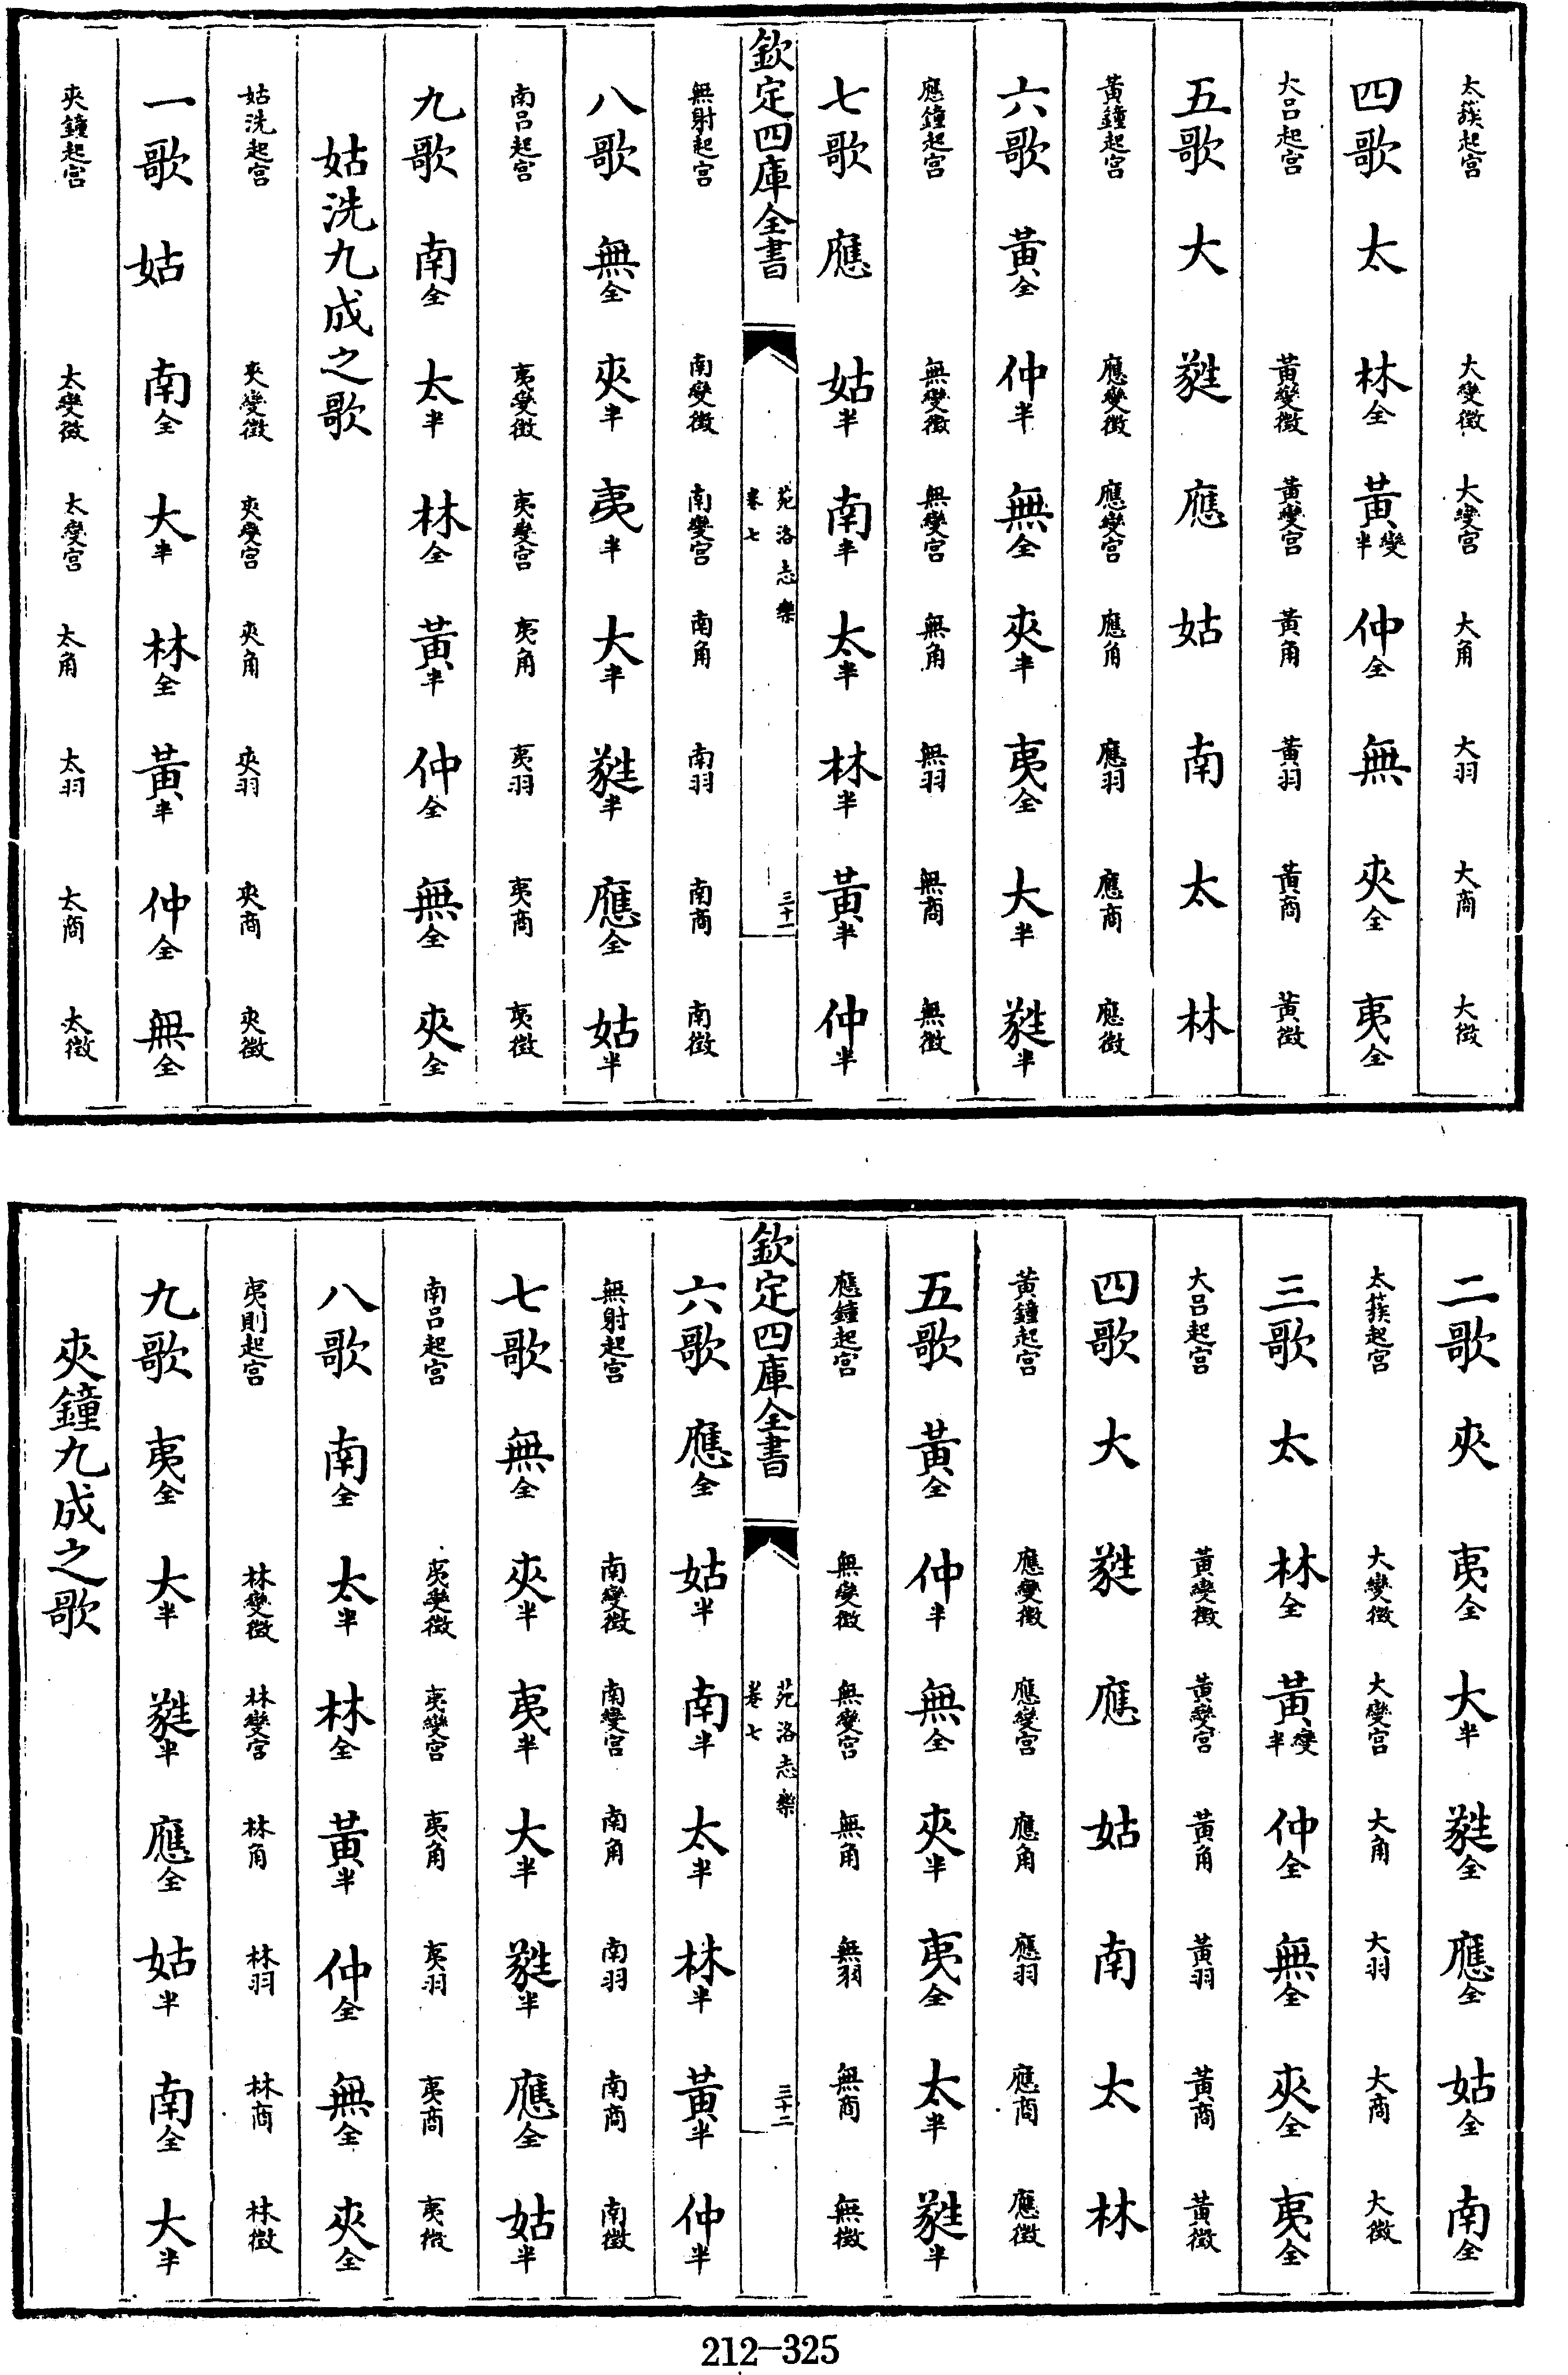 太蔟起宮　大變徵　大變宮　大角　大羽　大商　大徵
四歌　太　林全　黃變半　仲全　無　夾全　夷全
大呂起宮　黃變徵　黃變宮　黃角　黃羽　黃商　黃徵
五歌　大　蕤　應　姑　南　太　林
黃鐘起宮　應變徵　應變宮　應角　應羽　應商　應徵
六歌　黃全　仲半　無全　夾半　夷全　大半　蕤半
應鐘起宮　無變徵　無變宮　無角　無羽　無商　無徵
七歌　應　姑半　南半　太半　林半　黃半　仲半
欽定四庫全書　苑洛志樂　卷七　三十一
無射起宮　南變徵　南變宮　南角　南羽　南商　南徵
八歌　無全　夾半　夷半　大半　蕤半　應全　姑半
南呂起宮　夷變徵　夷變宮　夷角　夷羽　夷商　夷徵
九歌　南全　太半　林全　黃半　仲全　無全　夾全
姑洗九成之歌
姑洗起宮　夾變徵　夾變宮　夾角　夾羽　夾商　夾徵
一歌　姑　南全　大半　林全　黃半　仲全　無全
夾鐘起宮　太變徵　太變宮　太角　太羽　太商　太徵
二歌　夾　夷全　大半　蕤全　應全　姑全　南全
太蔟起宮　大變徵　大變宮　大角　大羽　大商　大徵
三歌　太　林全　黃變半　仲全　無全　夾全　夷全
大呂起宮　黃變徵　黃變宮　黃角　黃羽　黃商　黃徵
四歌　大　蕤　應　姑　南　太　林
黃鐘起宮　應變徵　應變宮　應角　應羽　應商　應徵
五歌　黃全　仲半　無全　夾半　夷全　太半　蕤半
應鐘起宮　無變徵　無變宮　無角　無羽　無商　無徵
欽定四庫全書　苑洛志樂　卷七　三十二
六歌　應全　姑半　南半　太半　林半　黃半　仲半
無射起宮　南變徵　南變宮　南角　南羽　南商　南徵
七歌　無全　夾半　夷半　大半　蕤半　應全　姑半
南呂起宮　夷變徵　夷變宮　夷角　夷羽　夷商　夷徵
八歌　南全　太半　林全　黃半　仲全　無全　夾全
夷則起宮　林變徵　林變宮　林角　林羽　林商　林徵
九歌　夷全　大半　蕤半　應全　姑半　南全　大半
夾鐘九成之歌
212-325